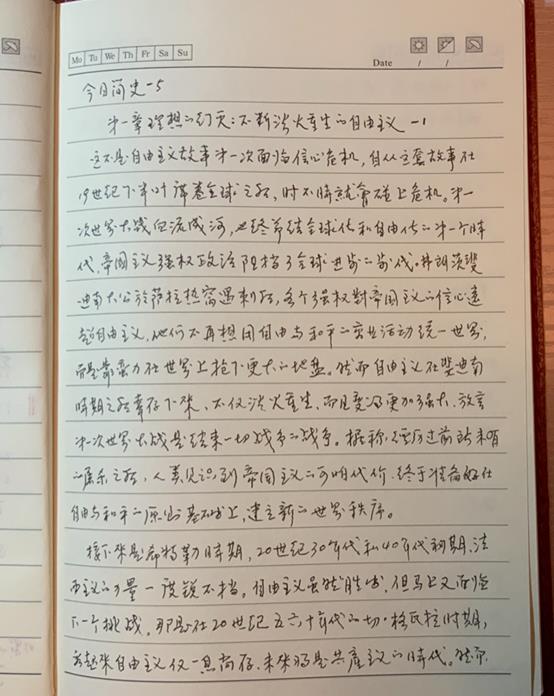 Mo Tu We Th Fr Sa Su
Date / /
今日简史-5
第一章理想的幻灭:不断浴火重生的自由主义 -1
这不是自由主义故事第一次面临信心危机,自从这套故事在
19世纪下半叶席卷全球之后,时不时就会碰上危机。第一
次世界大战血流成河,终结全球化和自由化的第一个时
代,帝国主义强权政治阻挡了全球进步的步伐。弗朗茨斐
迪南大公於萨拉热窝遇刺后,各个强权对帝国主义的信心远
超自由主义,他们不再想用自由与和平的商业活动统一世界,
而是靠暴力在世界上抢下更大的地盘。然而自由主义在斐迪南
时期之后幸存下来,不仅浴火重生,而且变得更加强大,放言
第一次世界大战是结束一切战争的战争。据称,经历过前所未有
的屠杀之后,人类见识到帝国主义的可怕代价,终于准备好在
自由与和平的原则基础上,建立新的世界秩序。
接下来是希特勒时期,20世纪30年代和40年代初期,法
西主义的力量一度锐不可挡。自由主义虽然胜出,但马上又面临
下一个挑战,那是在20世纪五六十年代的切·格瓦拉时期,
看起来自由主义仅一息尚存,未来将是共产主义的时代。然而